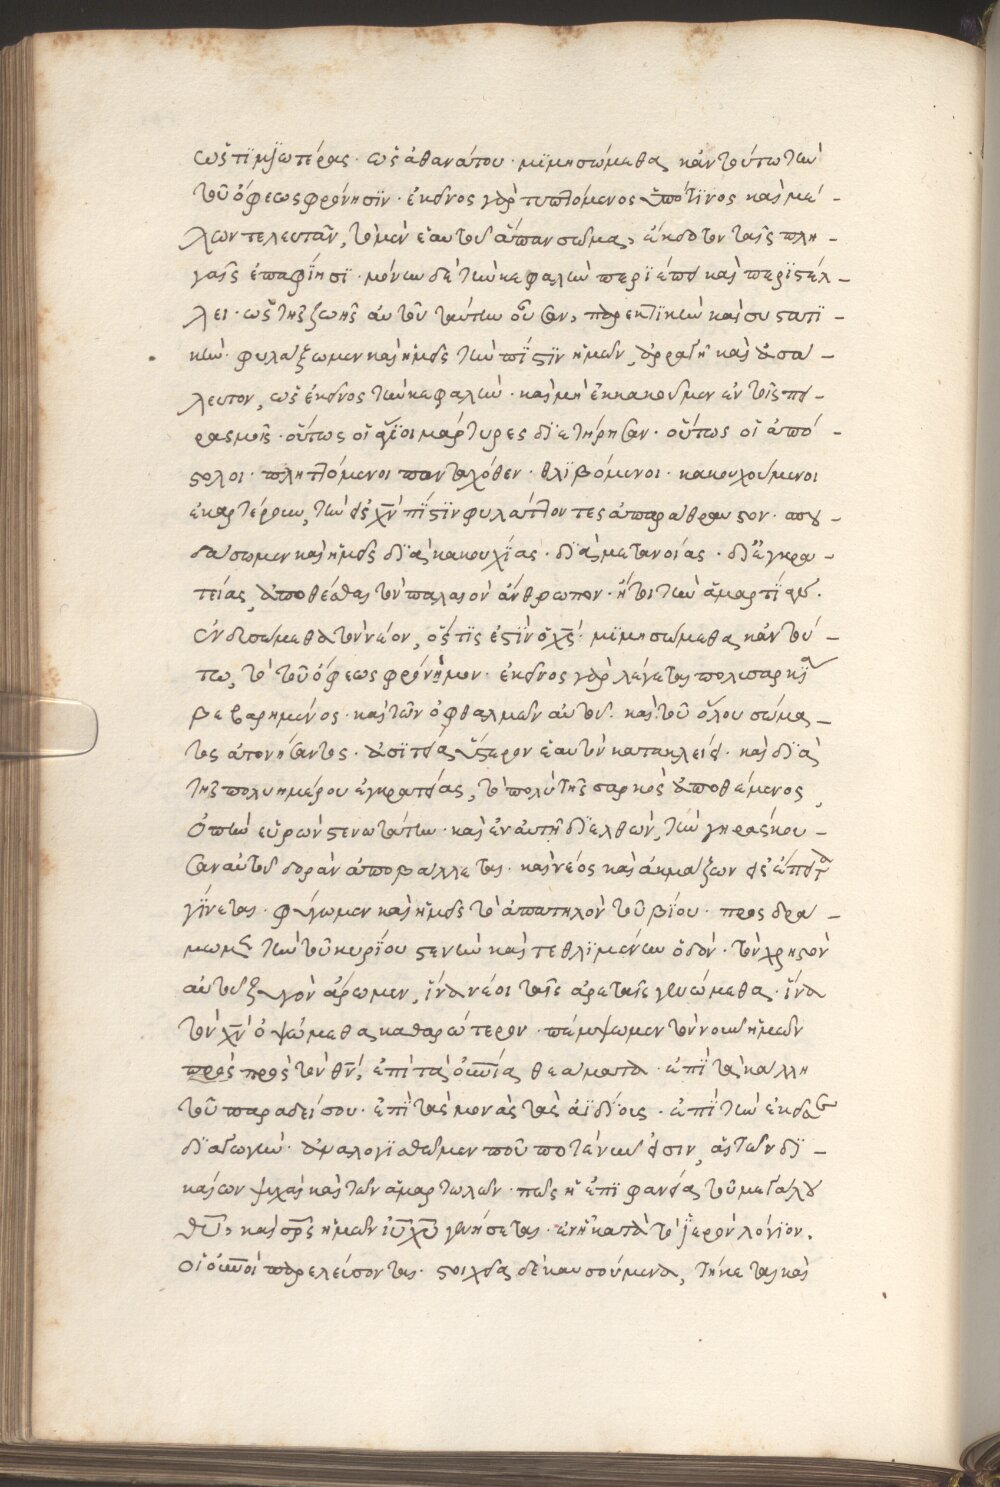 ὡς τιμιωτέρας· ὡς ἀθανάτου· μιμησώμεθα κἀν τούτω τὴν
τοῦ ὄφεως φρόνησιν· ἐκεῖνος γὰρ τυπτόμενος ὑπό τινος καὶ μέ-
λλων τελευτᾶν, τὸ μὲν ἑαυτοῦ ἅπαν σῶμα, ἔκδοτον ταῖς πλη-
γαῖς ἐπαφίησι· μόνην δὲ τὴν κεφαλὴν περιέπει καὶ περιστέλ-
λει· ὡς τῆς ζωῆς αὐτοῦ ταύτην οὖσαν, παρεκτικὴν καὶ συστατι-
κήν· φυλάξωμεν καὶ ἡμεῖς τὴν πίστιν ἡμῶν, ἀρραγῆ καὶ ἀσά-
λευτον, ὡς ἐκεῖνος τὴν κεφαλήν· καὶ μὴ ἐκκακοῦμεν ἐν τοῖς πει-
ρασμοῖς· οὕτως οἱ ἅγιοι μάρτυρες διετήρησαν· οὕτως οἱ ἀπό-
στολοι· πληττόμενοι πανταχόθεν· θλιβόμενοι· κακουχούμενοι
ἐκαρτέρουν, τὴν εἰς χν πίστιν φυλάττοντες ἀπαράθραυστον· σπου-
δάσωμεν καὶ ἡμεῖς διὰ κακουχίας· διὰ μετανοίας· δι' ἐγκρα-
τείας, ἀποθέσθαι τὸν παλαιὸν ἄνθρωπον· ἤτοι τὴν ἁμαρτίαν·
ἐνδυσώμεθα τὸν νέον, ὅστις ἐστὶν ὁ χς· μιμησώμεθα κἀν τού-
τω, τὸ τοῦ ὄφεως φρόνημον· ἐκεῖνος γὰρ λέγεται πολυσαρκία
βεβαρημένος· καὶ τῶν ὀφθαλμῶν αὐτοῦ· καὶ τοῦ ὅλου σώμα-
τος ἀτονήσαντος· ἀσιτεία ὕστερον ἑαυτὸν κατακλείει· καὶ διὰ
τῆς πολυημέρου ἐγκρατείας, τὸ πολὺ τῆς σαρκὸς ἀποθέμενος,
ὀπὴν εὑρὼν στενωτάτην· καὶ ἐν αὐτῆ διελθὼν, τὴν γηράσκου-
σαν αὐτοῦ δορὰν ἀποβάλλεται· καὶ νέος καὶ ἀκμάζων εἰς ἔπειτα
γίνεται· φύγωμεν καὶ ἡμεῖς τὸ ἀπατηλὸν τοῦ βίου· προσδρά-
μωμεν τὴν τοῦ κυρίου στενὴν καὶ τεθλιμένην ὁδόν· τὸν χρηστὸν
αὐτοῦ ζυγὸν ἄρωμεν, ἵνα νέοι ταῖς ἀρεταῖς γενώμεθα· ἵνα
τὸν χν ὀψώμεθα καθαρώτερον· πέμψωμεν τὸν νοῦν ἡμῶν
πρὸς πρὸς τὸν θν, ἐπὶ τὰ οὐνία θεάματα· ἐπὶ τὰ κάλλη
τοῦ παραδείσου· ἐπὶ τὰς μονὰς τὰς ἀϊδίοις· ἐπὶ τὴν ἐκεῖσε
διαγωγήν· ἀναλογισθῶμεν ποῦ ποτε νῦν εἰσιν, αἱ τῶν δι-
καίων ψυχαὶ καὶ τῶν ἁμαρτωλῶν· πῶς ἡ ἐπιφανεία τοῦ μεγάλου
θυ, καὶ σρς ἡμῶν ιυ χυ γενήσεται· ἐν ἧ κατὰ τὸ ἱερὸν λόγιον·
οἱ οὐνοὶ παρελεύσονται· στοιχεῖα δὲ καυσούμενα, τήκεται καὶ